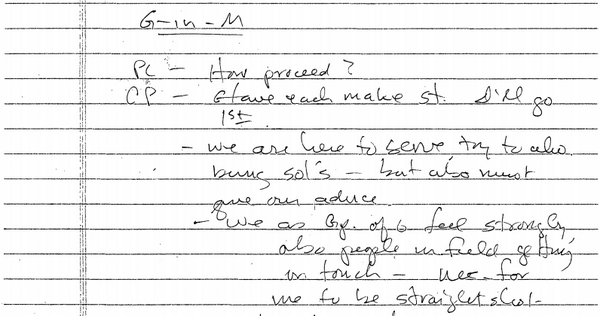 G-in-M
PC - How proceed?
CP - Have each make st. I'll go
1st
- we are here to serve, try to also
bring sol's - but also must
give our advice
- We as Gp. of 6 feel strongly
also people in field getting
in touch - nec. for
me to be straight